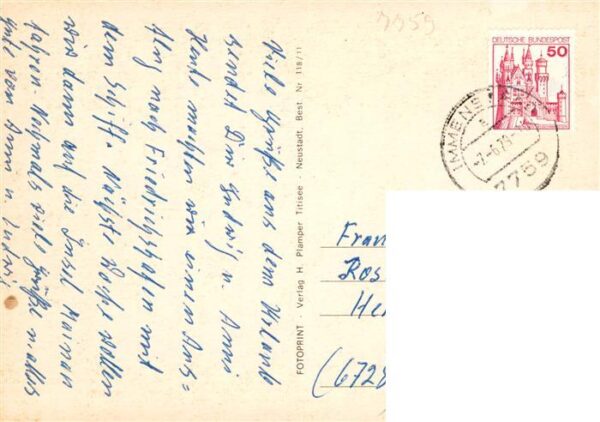 7759
DEUTSCHE BUNDESPOST
50
IMMENS
-7.-6.79-
7759
Viele Grüße aus dem Urlaub
sendet Dir Ludwig u. Anni
Heut machten wir einen Aus=
flug nach Friedrichshafen mit
dem Schiff. Nächste Woche wollen
wir dann auf die Insel Mainau
fahren. Nochmals viele Grüße u. alles
Gute von Anni u. Ludwig
FOTOPRINT · Verlag H. Plamper Titisee - Neustadt, Best. Nr. 118/11
Fran
Ros
He
(6728